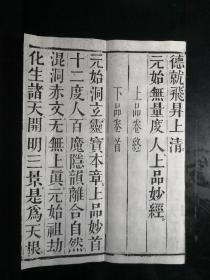 德就飛昇上清
元始無量度人上品妙經
上品卷終
下品卷首
元始洞立靈寶本章上品妙首
十二度人百魔隱韻離合自然
混洞赤文無上眞元始祖劫
化生諸天開明三景是為天根